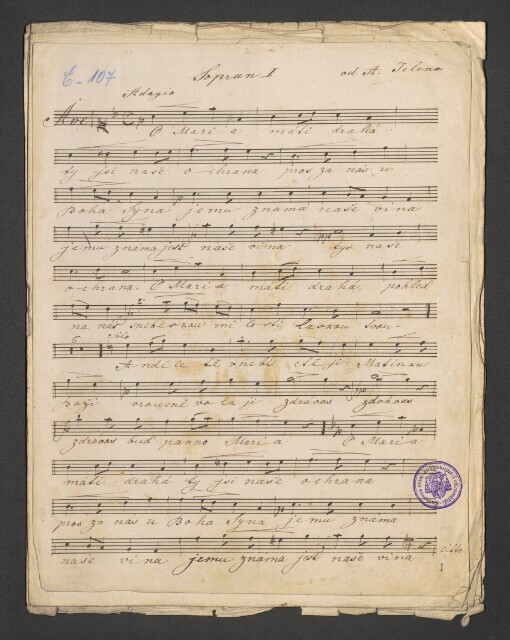 E-107
Sopran I
od Al. Jelena
Adagio
Ave
O Mari a mati drahá
ty jsi naše o-chrana pros za nás u
Boha Syna jemu známá naše vina
jemu známa jest naše vina tys naše
o-chrana. O Mari a mati drahá, pohled
na nás snebe szau mi lo sti laskau svau-
6 sólo
Andě le tě vnebi ctě je Matinku
Boži vroucně vo la je zdrávas zdrávas
zdrávas bud panno Mari a O Mari a
mati drahá ty jsi naše ochrana
pros za nás u Boha Syna je mu známa
naše vi na jemu známa jest naše vina
1